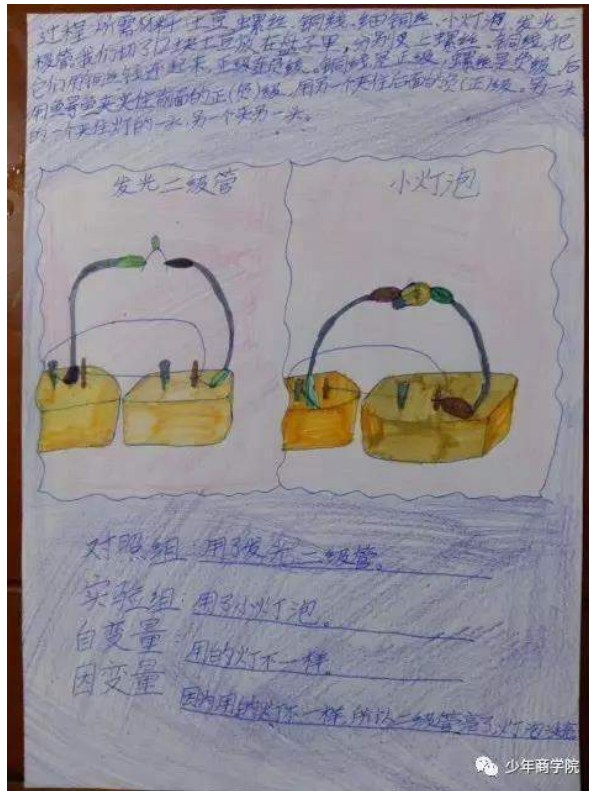 过程:所需材料:土豆、螺丝、铜线、细铜丝、小灯泡、发光二
极管。我们切了12块土豆放在盘子里,分别安上螺丝、铜线,把
它们用铜丝线连起来,正级连负级。铜线是正级,螺丝是负级。后
用导线夹夹住前面的正(负)级。用另一个夹住后面的负(正)级。另一头
的一个夹住灯的一头,另一个夹另一头。
发光二级管
小灯泡
对照组:用了发光二级管。
实验组:用了小灯泡。
自变量:用的灯不一样。
因变量
因为用的灯不一样,所以二级管亮了,灯泡没亮
少年商学院